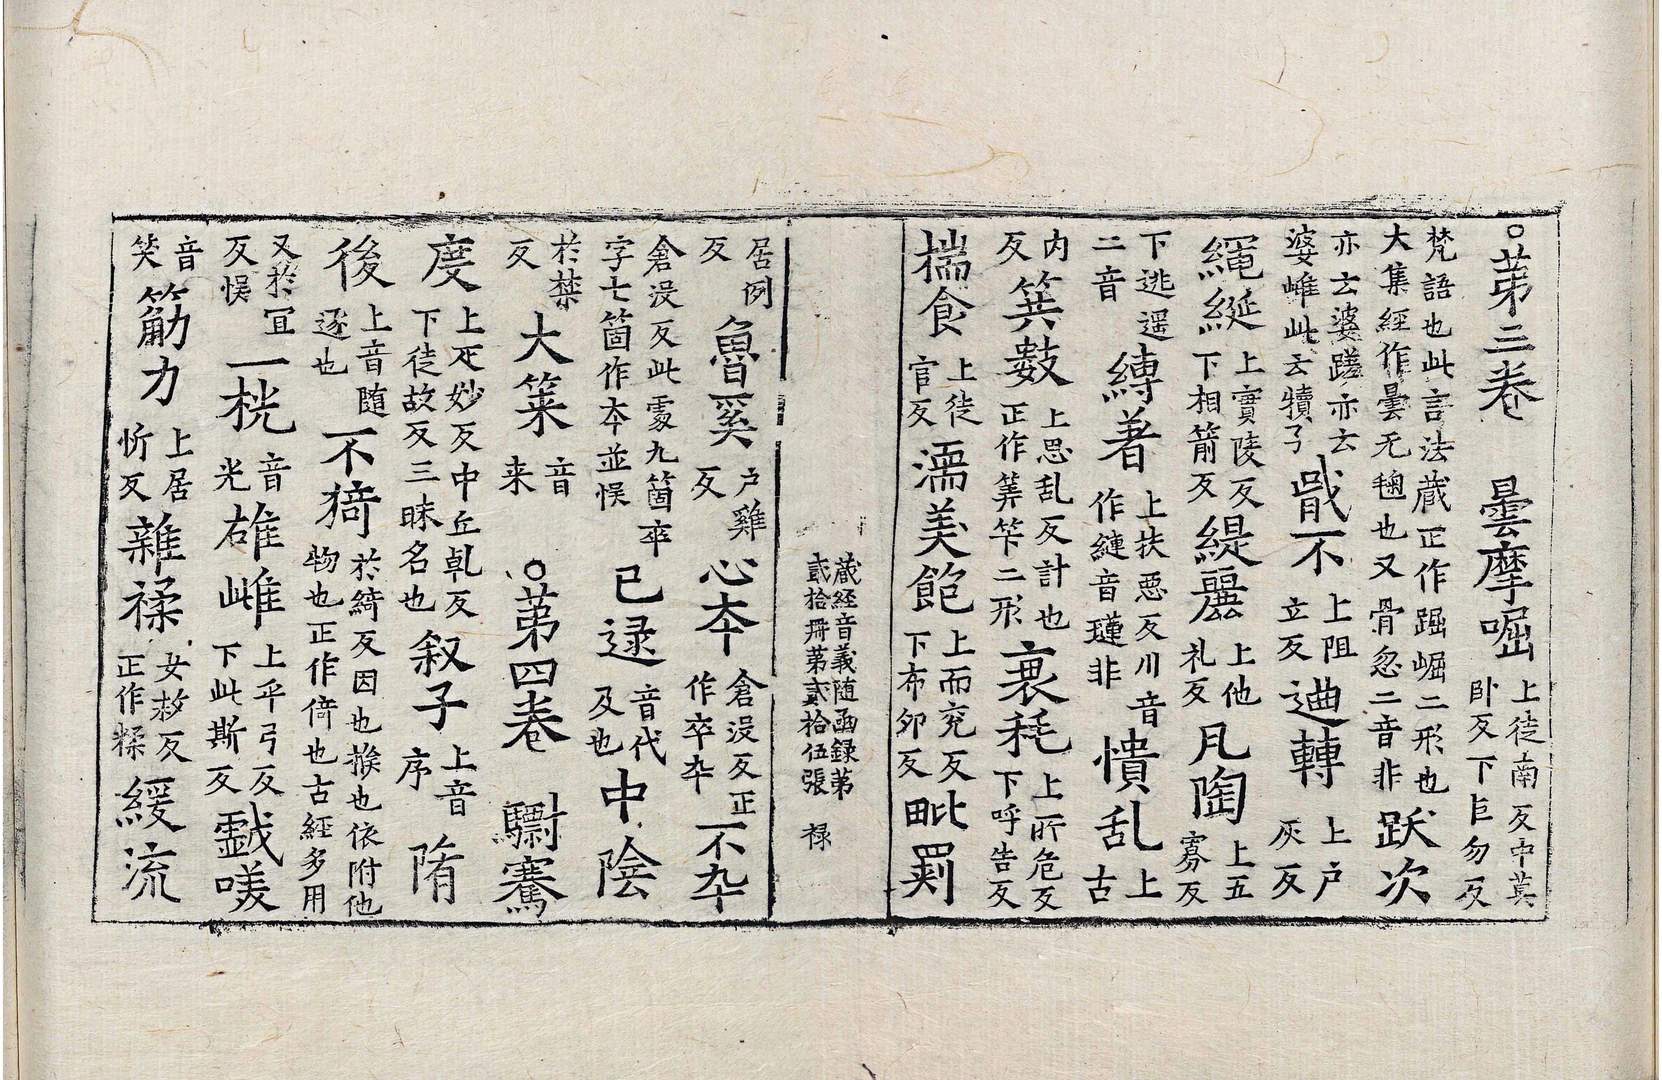 ○苐三卷　曇摩崛上徒南反中莫卧反下巨勿反
梵語也此言法蔵正作踞崛二形也大集經作曇无毱也又骨忽二音非趺次
亦云婆蹉亦云婆雌此云犢子㘅不上阻立反𨓍轉上户灰反
繩綖上實陵反下相箭反緹䴡上他礼反凡陶上五寡反
下逃遥二音縛著上扶惡反川音作縺音璉非憒乱上古
内反筭數上思乱反計也正作筭笇二形衰秏上所危反下呼告反
揣食上徒官反濡美上而兖反飽下布卯反毗罰
蔵經音義随函録第貳拾册第貳拾伍張　禄
居例反魯奚户雞反心夲倉没反正作卒卆不卆
倉没反此䖏九箇卒字七箇作夲並悮已逯音代及也中陰
扵禁反大䇲音来○苐四卷　䮷騫
度上疋妙反中丘乹反下徒故反三昧名也叙子上音序隋
後上音随逐也不猗扵綺反因也㨿也依附他物也正作倚也古經多用
又扵冝反悮一桄音光雄雌上乎弓反下此斯反戱㗛
音笑筋力上居忻反雜禄女救反正作糅緩流